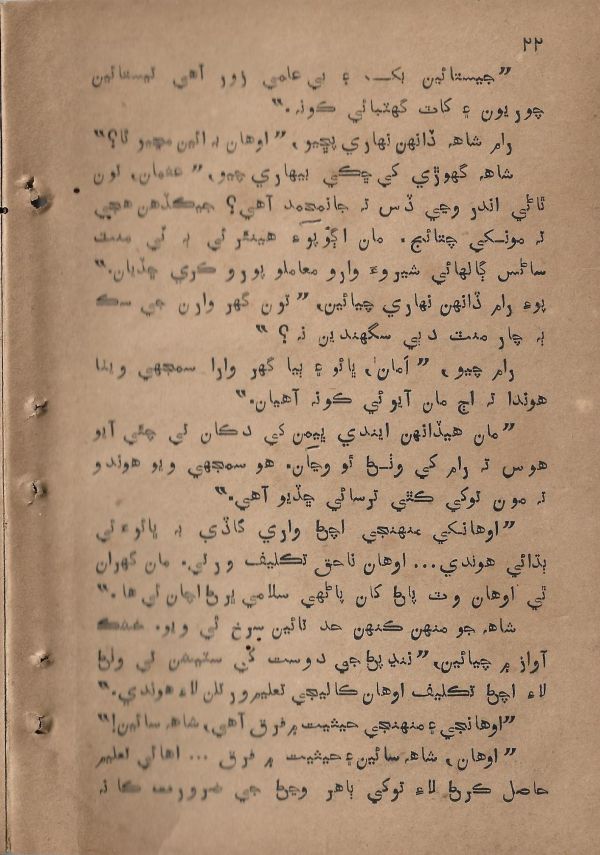 ۲۲
”جيستائين بک، ۽ بي علمي زور آهي تيستائين
چوريون ۽ کات گهٽبائي ڪونہ.“
رام شاهہ ڏانهن نهاري پڇيو، ”اوهان بہ ائين مڃيو ٿا؟“
شاهہ گهوڙي کي چڪي بيهاري چيو، ”عثمان، تون
ٿاڻي اندر وڃي ڏس تہ جانمحمد آهي؟ جيڪڏهن هجي
تہ مونکي چتائج. مان اڳو پوءِ هينئر ئي بہ ٽي منٽ
ساڻس ڳالهائي شيروءَ وارو معاملو پورو ڪري ڇڏيان.“
پوءِ رام ڏانهن نهاري چيائين، ”تون گهر وارن جي سڪ
بہ چار منٽ دٻي سگهندين نہ؟“
رام چيو، ”امان، ڀائو ۽ ٻيا گهر وارا سمجهي ويٺا
هوندا تہ اڄ مان آيوئي ڪونہ آهيان.“
”مان هيڏانهن ايندي ڀيمن کي دڪان تي چئي آيو
هوس تہ رام کي وٺڻ ٿو وڃان. هو سمجهي ويو هوندو
تہ مون توکي ڪٿي ترسائي ڇڏيو آهي.“
”اوهانکي منهنجي اچڻ واري گاڏي بہ ڀائوءَ ئي
ٻڌائي هوندي... اوهان ناحق تڪليف ورتي. مان گهران
ٿي اوهان وٽ پاڻ کان پاڻهي سلامي ڀرڻ اچان ٿي ها.“
شاهہ جو منهن ڪنهن حد تائين سرخ ٿي ويو.
آواز ۾ چيائين، ”ننڍپڻ جي دوست کي سٽيشن تي وٺڻ
لاءِ اچڻ تڪليف اوهان ڪاليجي تعليم ورتلن لاءِ هوندي.“
”اوهانجي ۽ منهنجي حيثيت ۾ فرق آهي، شاهہ سائين!“
”اوهان، شاهہ سائين ۽ حيثيت ۾ فرق ... اهائي تعليم
حاصل ڪرڻ لاءِ توکي ٻاهر وڃڻ جي ضرورت ڪا نہ